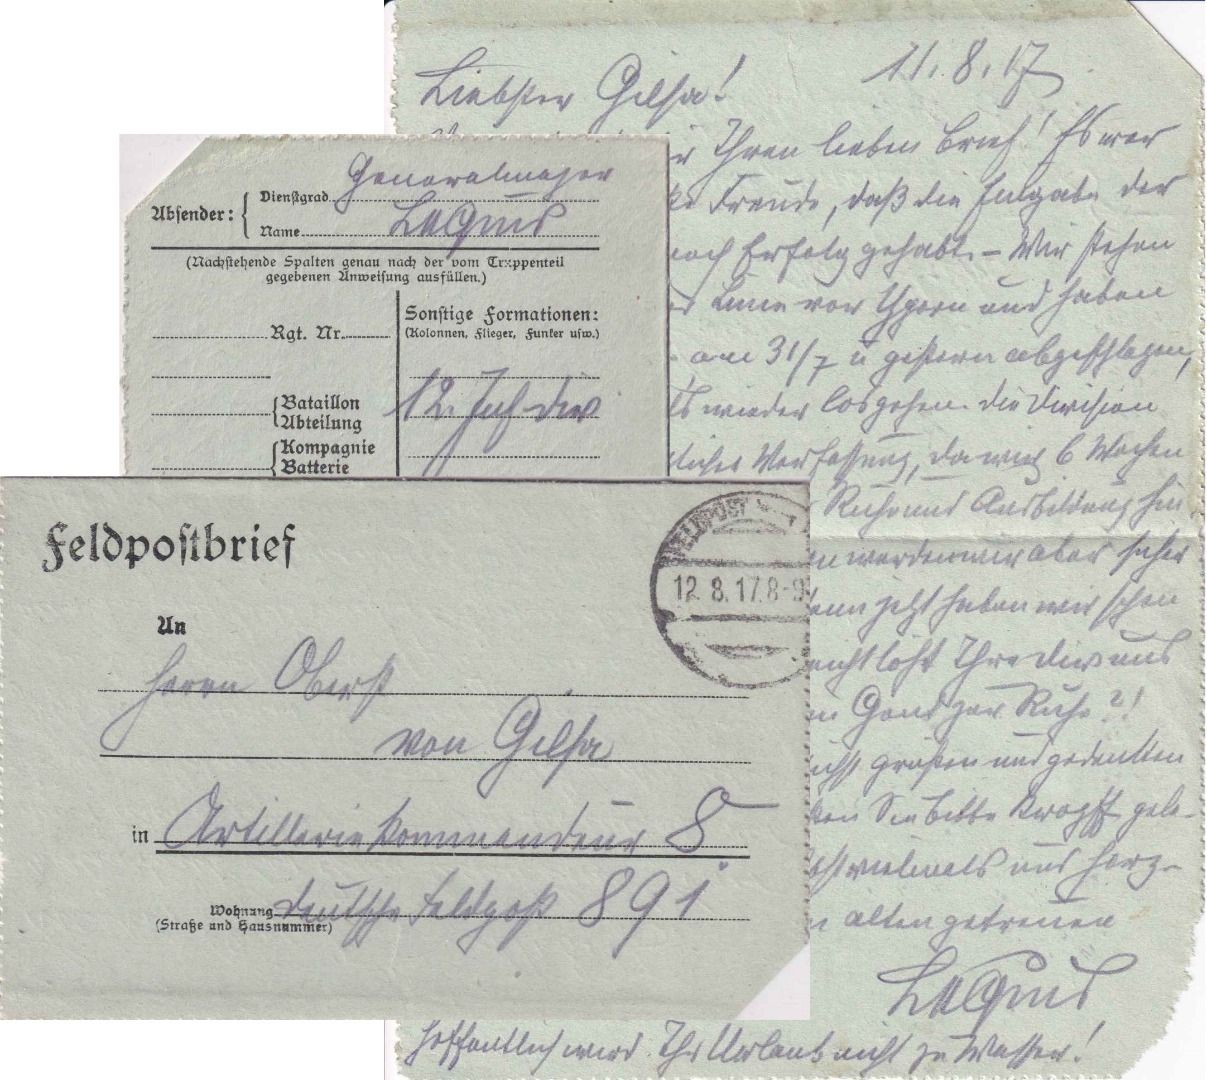 11. 8. 17
Liebster Gilsa!
Ihren lieben Brief! Es war
Freude, daß die Eingabe der
noch Erfolg gehabt. – Wir stehen
Linie vor Ypern und haben
am 31/7 u gestern abgeschlagen,
wieder losgehen. Die Division
Verfassung, da wir 6 Wochen
Ruhe und Ausbildung hin
werden wir aber sicher
jetzt haben wir schon
Ihre Div aus
Gent zur Ruhe?!
grüßen und gedenken
Sie bitte Kropff gele-
vielmals und herz-
alten getreuen
Lequis
Hoffentlich wird Ihr Urlaub nicht zu Wasser!
Absender:
Dienstgrad Generalmajor
Name Lequis
(Nachstehende Spalten genau nach der vom Truppenteil
gegebenen Anweisung ausfüllen.)
Rgt. Nr.
Bataillon
Abteilung
Kompagnie
Batterie
Sonstige Formationen:
(Kolonnen, Flieger, Funker usw.)
12. Inf Div
Feldpostbrief
FELDPOST
12. 8. 17. 8-9
An
Herrn Oberst
von Gilsa
in Artilleriekommandeur 8.
Wohnung Deutsche Feldpost 891
(Straße und Hausnummer)